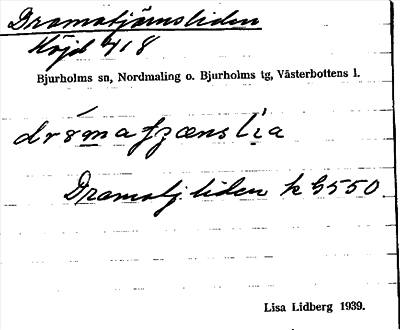 Dramatjärnsliden
Höjd 418
Bjurholms sn, Nordmaling o. Bjurholms tg, Västerbottens l.
Dramatj.liden k G550
Lisa Lidberg 1939.